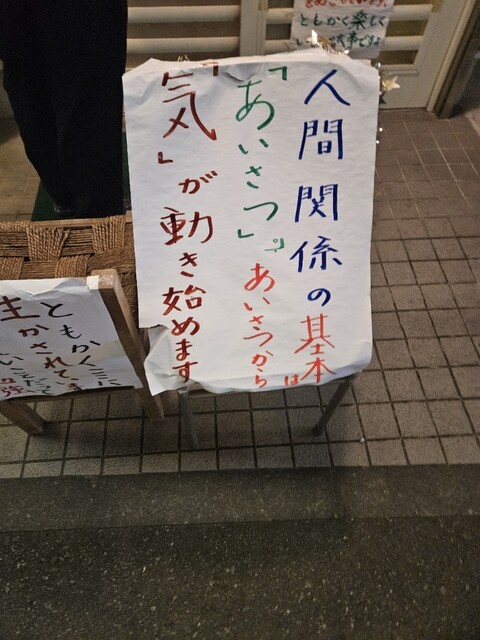 人間関係の基本は
「あいさつ」。あいさつから
「気」が動き始めます
ともかく楽しく
ともかくここに
生かされています